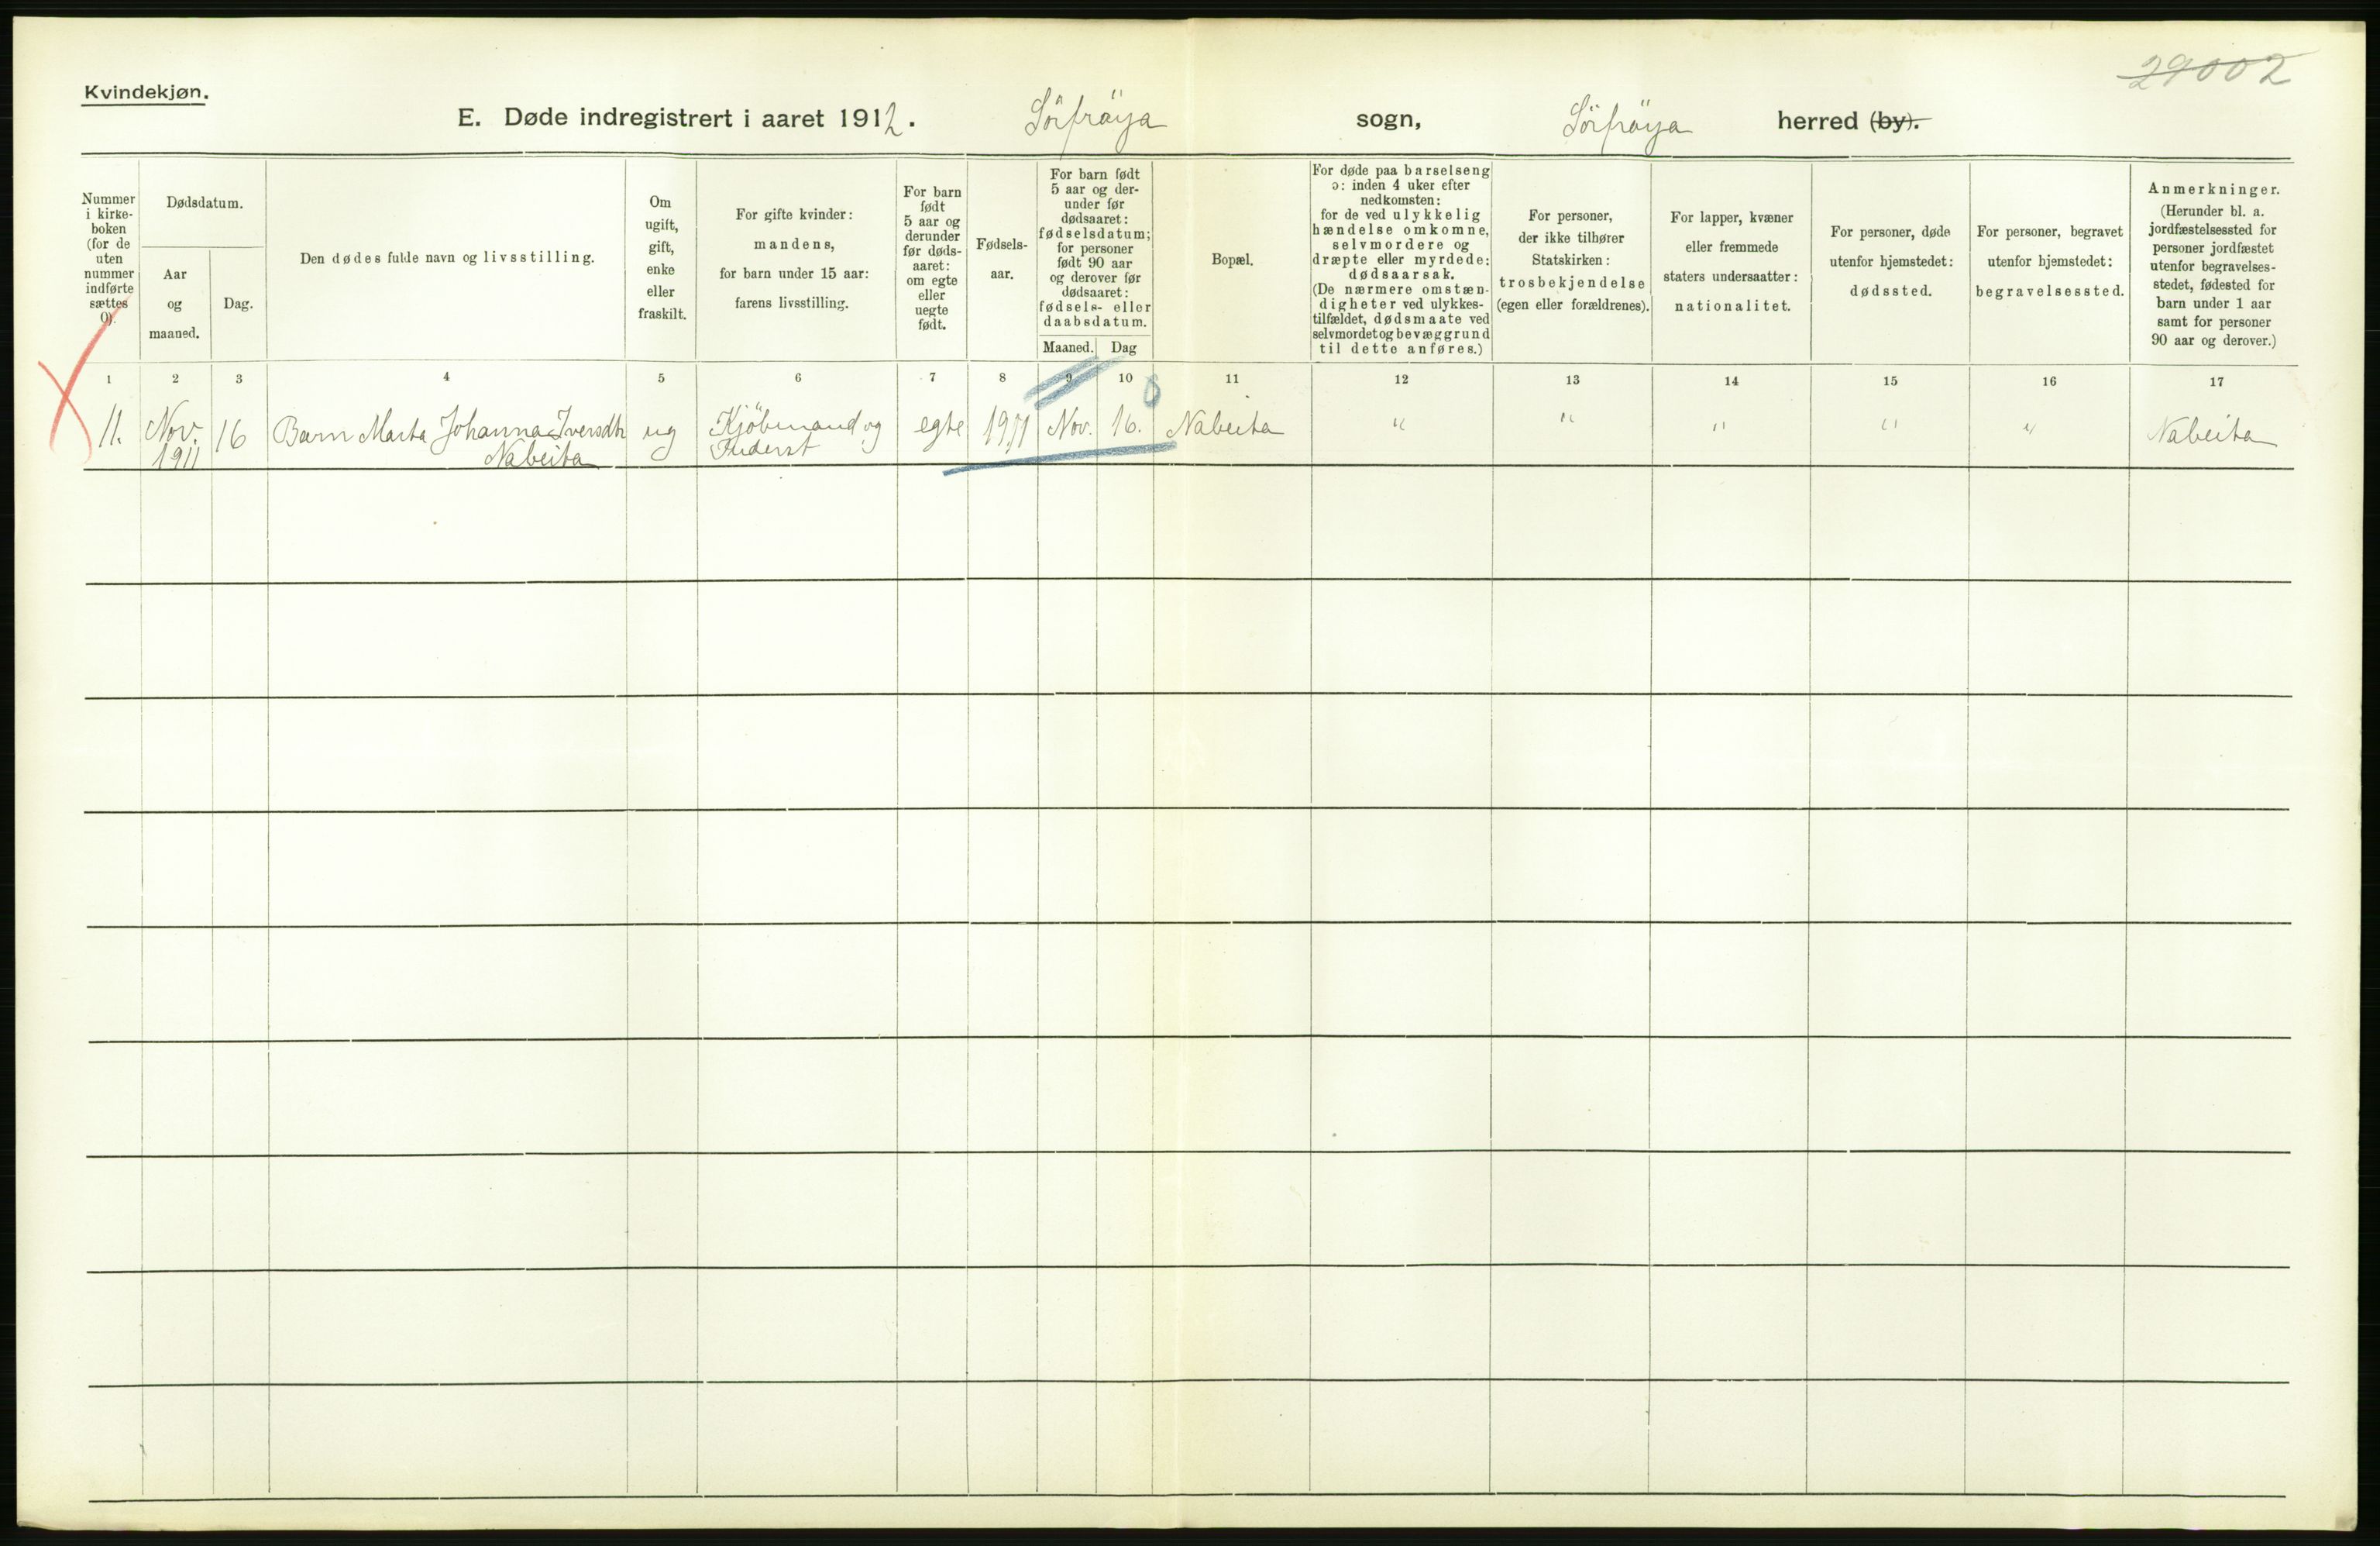 29002
Kvindekjøn.
E. Døde indregistrert i aaret 1912. Sörfröya sogn, Sörfröya herred (by).
Nummer
i kirke-
boken
(for de
uten
nummer
indførte
sættes
0).
Dødsdatum.
Aar
og
maaned.
Dag.
Den dødes fulde navn og livsstilling.
Om
ugift,
gift,
enke
eller
fraskilt.
For gifte kvinder:
mandens,
for barn under 15 aar:
farens livsstilling.
For barn
født
5 aar og
derunder
før døds-
aaret:
om egte
eller
uegte
født.
Fødsels-
aar.
For barn født
5 aar og der-
under før
dødsaaret:
fødselsdatum;
for personer
født 90 aar
og derover før
dødsaaret:
fødsels- eller
daabsdatum.
Maaned. Dag
Bopæl.
For døde paa barselseng
ɔ: inden 4 uker efter
nedkomsten:
for de ved ulykkelig
hændelse omkomne,
selvmordere og
dræpte eller myrdede:
dødsaarsak.
(De nærmere omstæn-
digheter ved ulykkes-
tilfældet, dødsmaate ved
selvmordet og bevæggrund
til dette anføres.)
For personer,
der ikke tilhører
Statskirken:
trosbekjendelse
(egen eller forældrenes).
For lapper, kvæner
eller fremmede
staters undersaatter:
nationalitet.
For personer, døde
utenfor hjemstedet:
dødssted.
For personer, begravet
utenfor hjemstedet:
begravelsessted.
Anmerkninger.
(Herunder bl. a.
jordfæstelsessted for
personer jordfæstet
utenfor begravelses-
stedet, fødested for
barn under 1 aar
samt for personer
90 aar og derover.)
1 2 3 4 5 6 7 8 9 10 11 12 13 14 15 16 17
11. Nov. 16 Barn Marta Johanna Iversdtr ug Kjöbmand og egte 1911 Nov. 16. Nabeita " " " " " Nabeita
1911 Nabeita